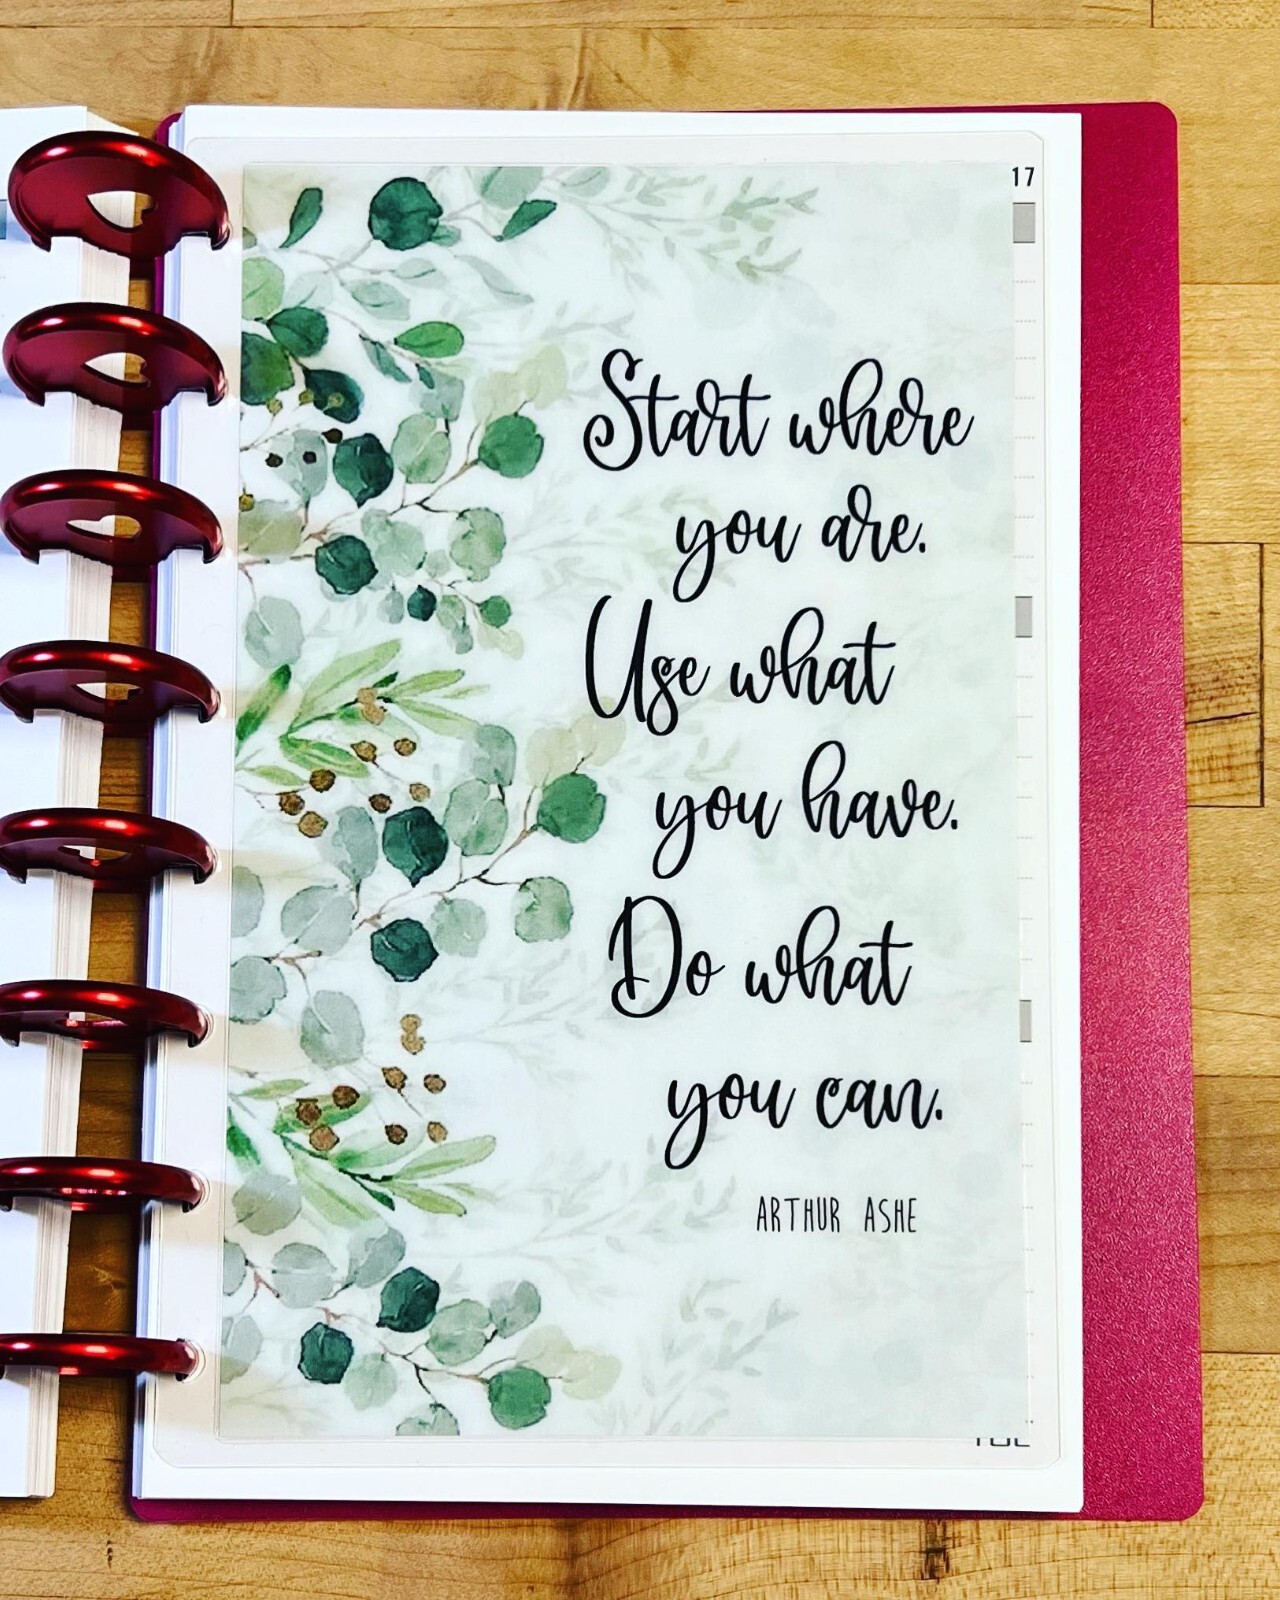 17
Start where
you are.
Use what
you have.
Do what
you can.
ARTHUR ASHE